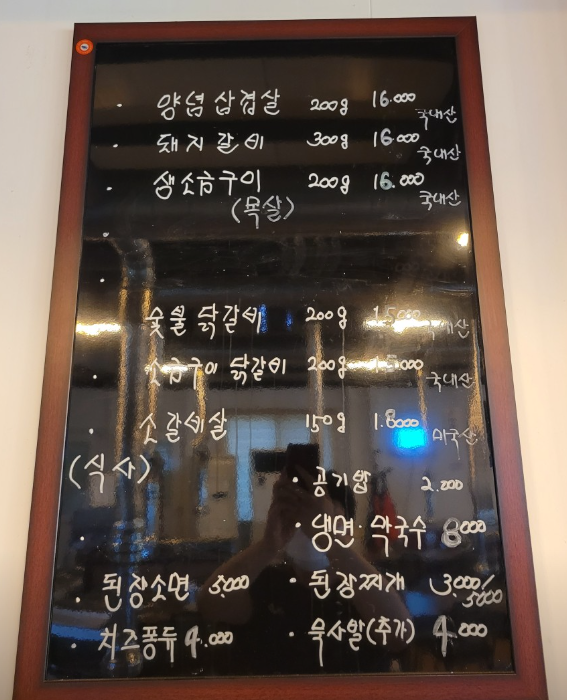 · 양념 삼겹살 200g 16.000 국내산
· 돼지갈비 300g 16.000 국내산
· 생소금구이 200g 16.000 국내산
(목살)
· 숯불 닭갈비 200g 15000 국내산
· 소금구이 닭갈비 200g 15.000 국내산
· 소갈비살 150g 1.8000 미국산
(식사)
· 공기밥 2.000
· 냉면·막국수 8000
· 된장소면 5.000
· 된장찌개 3.000/5000
· 치즈퐁듀 4.000
· 묵사발(추가) 4.000